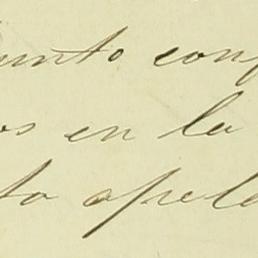 unto conf
os en la
to apela